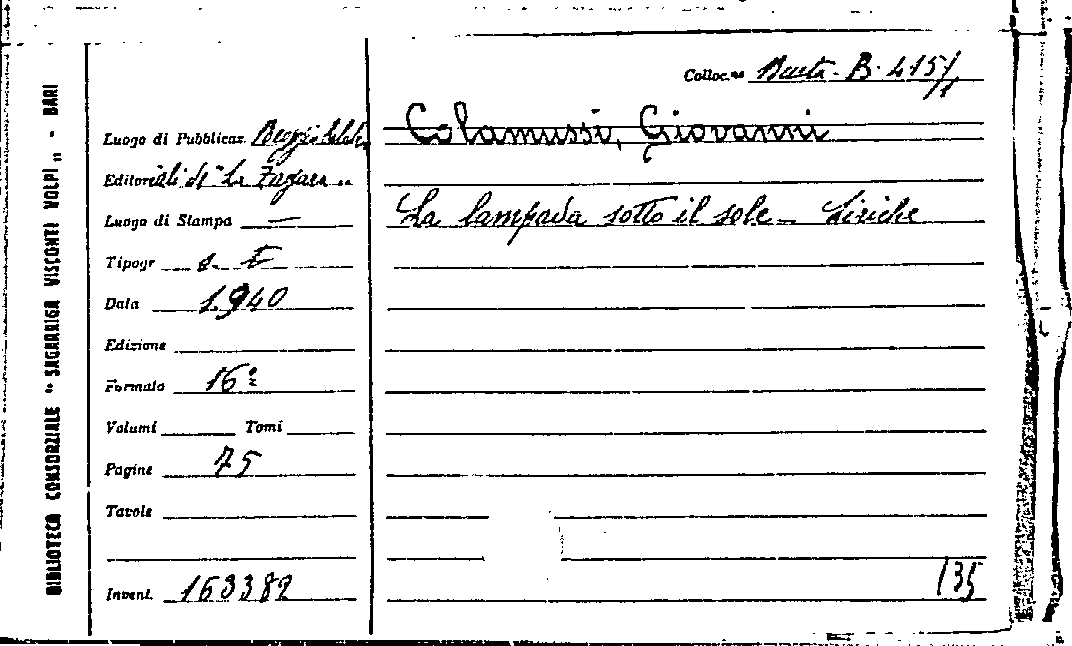 BIBLIOTECA CONSORZIALE "SAGARRIGA VISCONTI VOLPI" - BARI
Colloc.ne Busta B. 415/1
Luogo di Pubblicaz. Reggio Calabr.
Colamussi, Giovanni
Editore ediz. di "La Zagara"
Luogo di Stampa —
La lampada sotto il sole - Liriche
Tipogr s. t.
Data 1940
Edizione
Formato 16°
Volumi Tomi
Pagine 75
Tavole
Invent. 163382
135